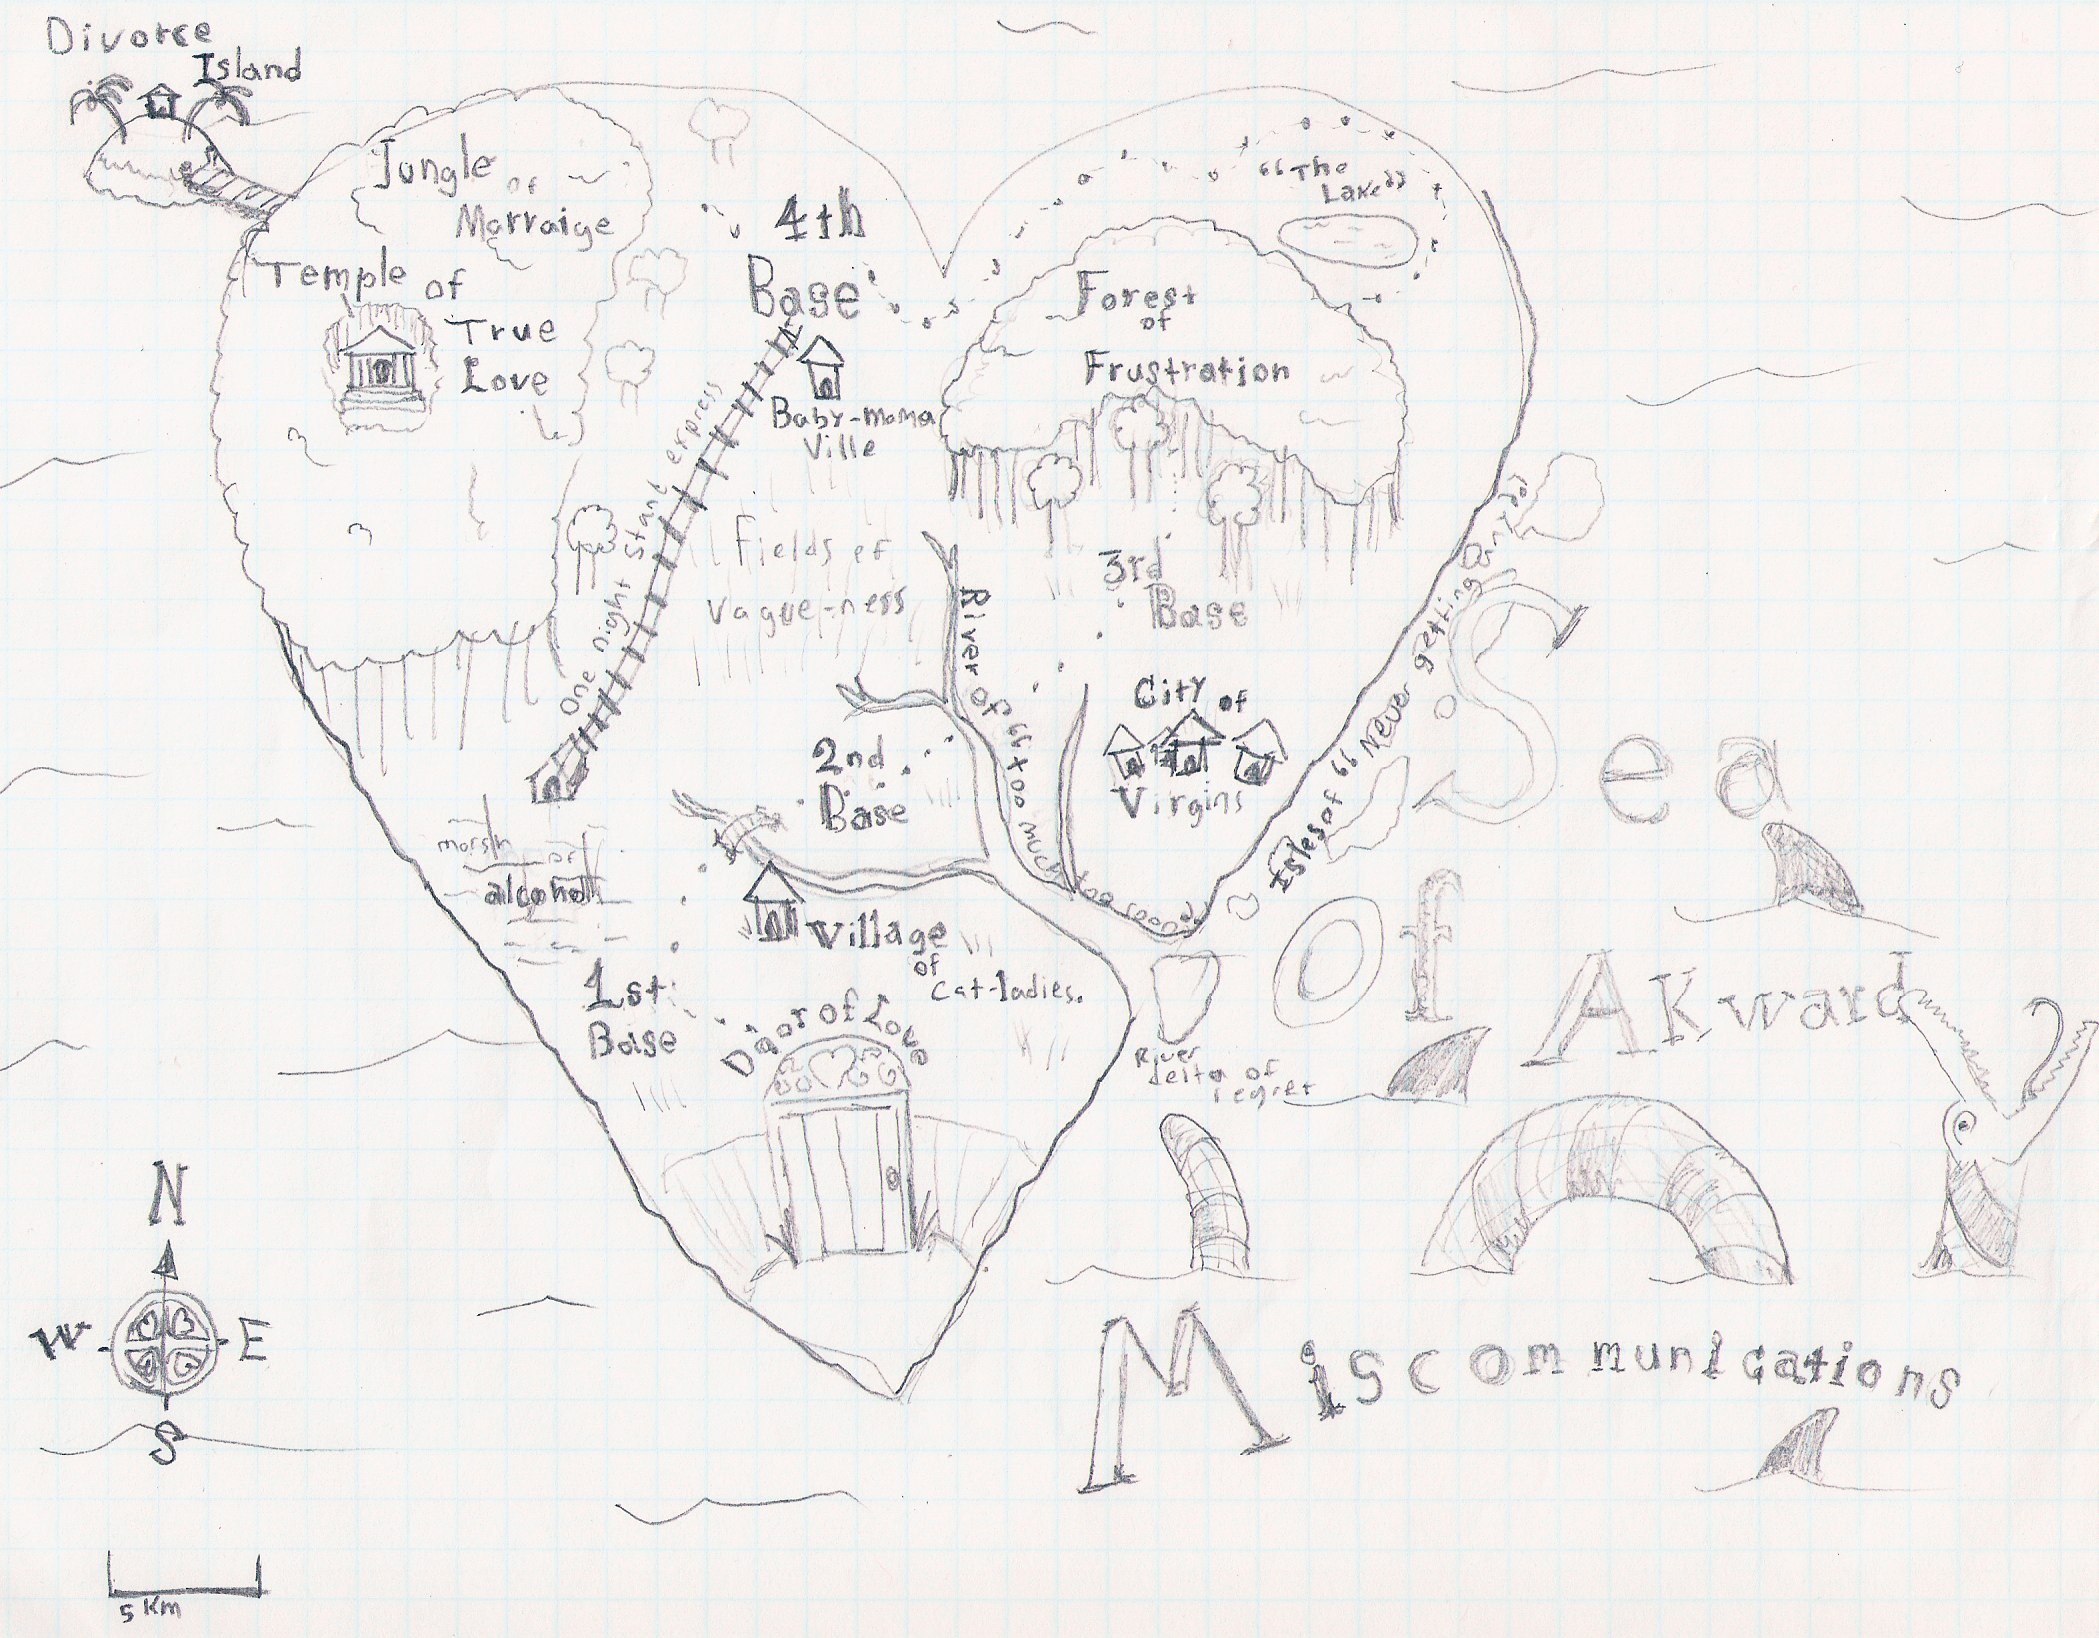 Divorce
Island
Jungle of
Marraige
Temple of
True
Love
4th
Base
Baby-mama
Ville
"The
Lake"
Forest
of
Frustration
One night stand express
Fields of
Vague-ness
River of "too much too soon"
3rd
Base
City of
Virgins
Isles of "Never getting
2nd
Base
marsh of
alcohol
Village
of
Cat-ladies.
1st
Base
Door of Love
River
delta of
regret
Sea
of
AKward
Miscommunications
N
W E
S
5 Km